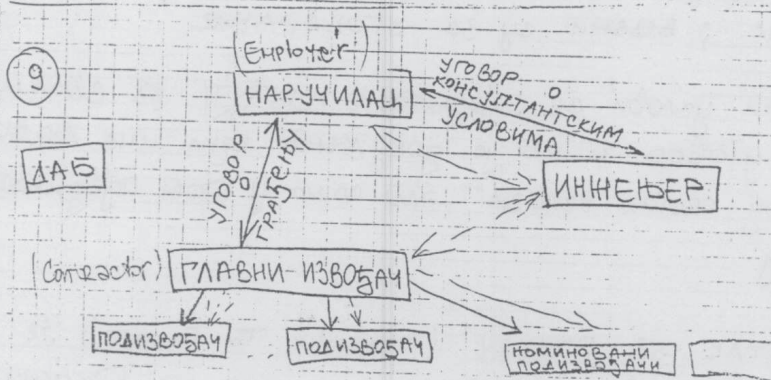 (Employer)
9
НАРУЧИЛАЦ
УГОВОР О
КОНСУЛТАНТСКИМ
УСЛОВИМА
ДАБ
УГОВОР О
ГРАЂЕЊУ
ИНЖЕЊЕР
(Contractor)
ГЛАВНИ-ИЗВОЂАЧ
ПОДИЗВОЂАЧ
ПОДИЗВОЂАЧ
НОМИНОВАНИ
ПОДИЗВОЂАЧИ